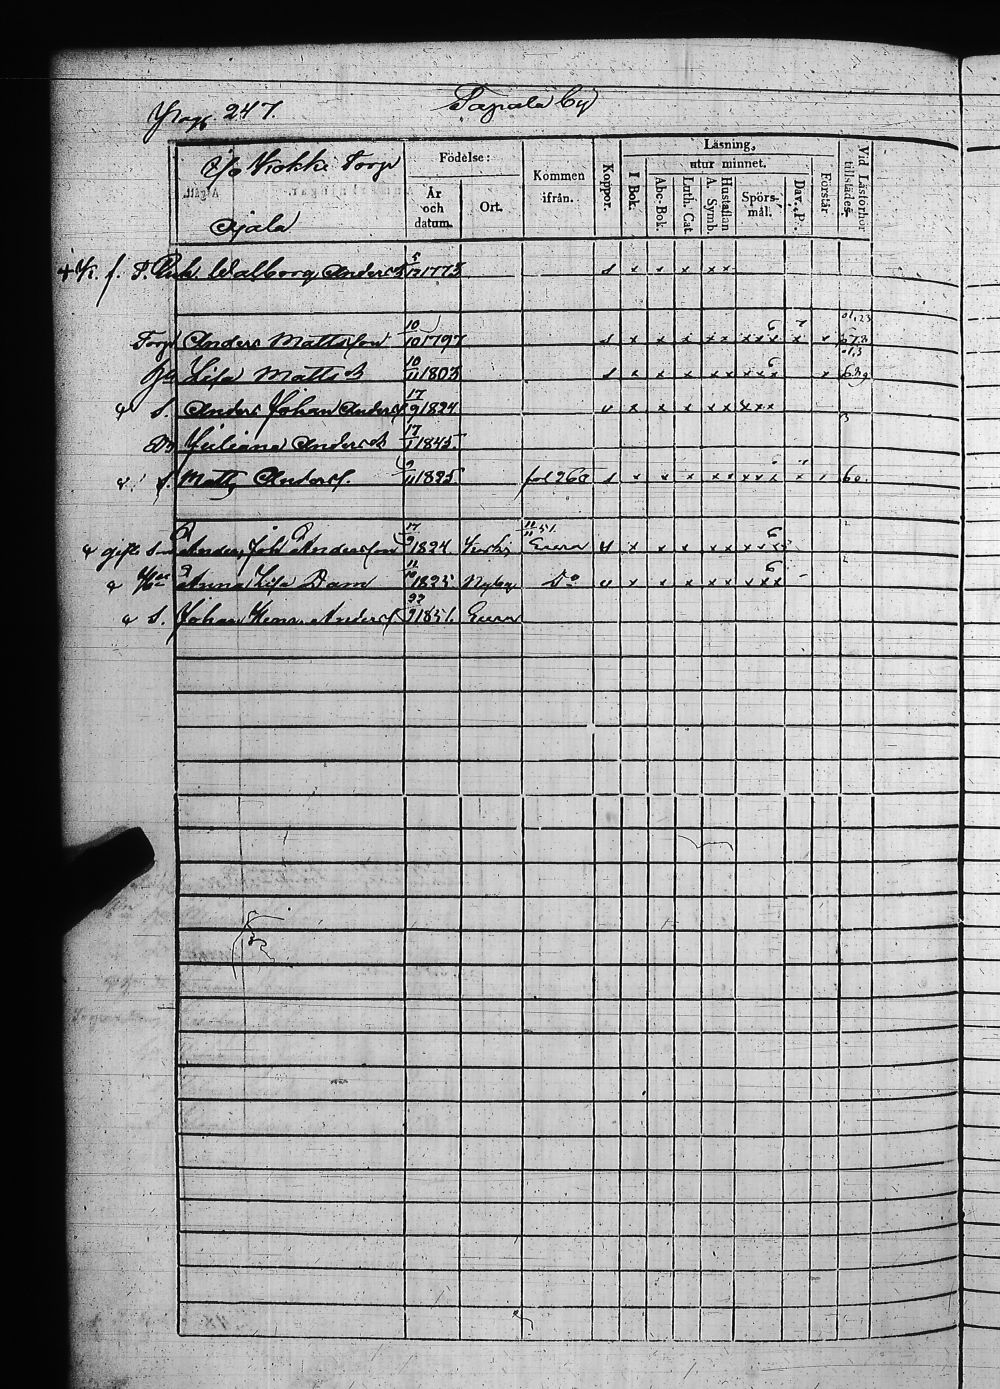 Pag. 247. Sapala By
Krokki Torp
Ajala
Födelse:
År och datum.
Ort.
Kommen ifrån.
Koppor.
Läsning,
I Bok.
utur minnet.
Abc-Bok.
Luth. Cat.
A. Symb.
Hustaflan
Spörs-mål.
Dav. P.
Förstår
Vid Läsförhör tillstädes.
Enk. Walborg Andersd 5/12 1773 s x x x x x
Torp Anders Mattsson 10/10 1797 s x x x x x x x x x x
Lisa Mattsd 10/11 1803 s x x x x x x x x x
S. Anders Johan Anders 17/9 1824 v x x x x x x x x
Juliana Andersd 17/1 1845
S. Matts Anders. 2/11 1825 fol 260 s x x x x x x x x x 60
gifte Son Anders Joh Andersson 17/9 1824 11/11 51 Eura v x x x x x x x x
Anna Lisa Dam 11/10 1825 Nyby Do v x x x x x x x x
S. Johan Henr. Anders 1851. Eura